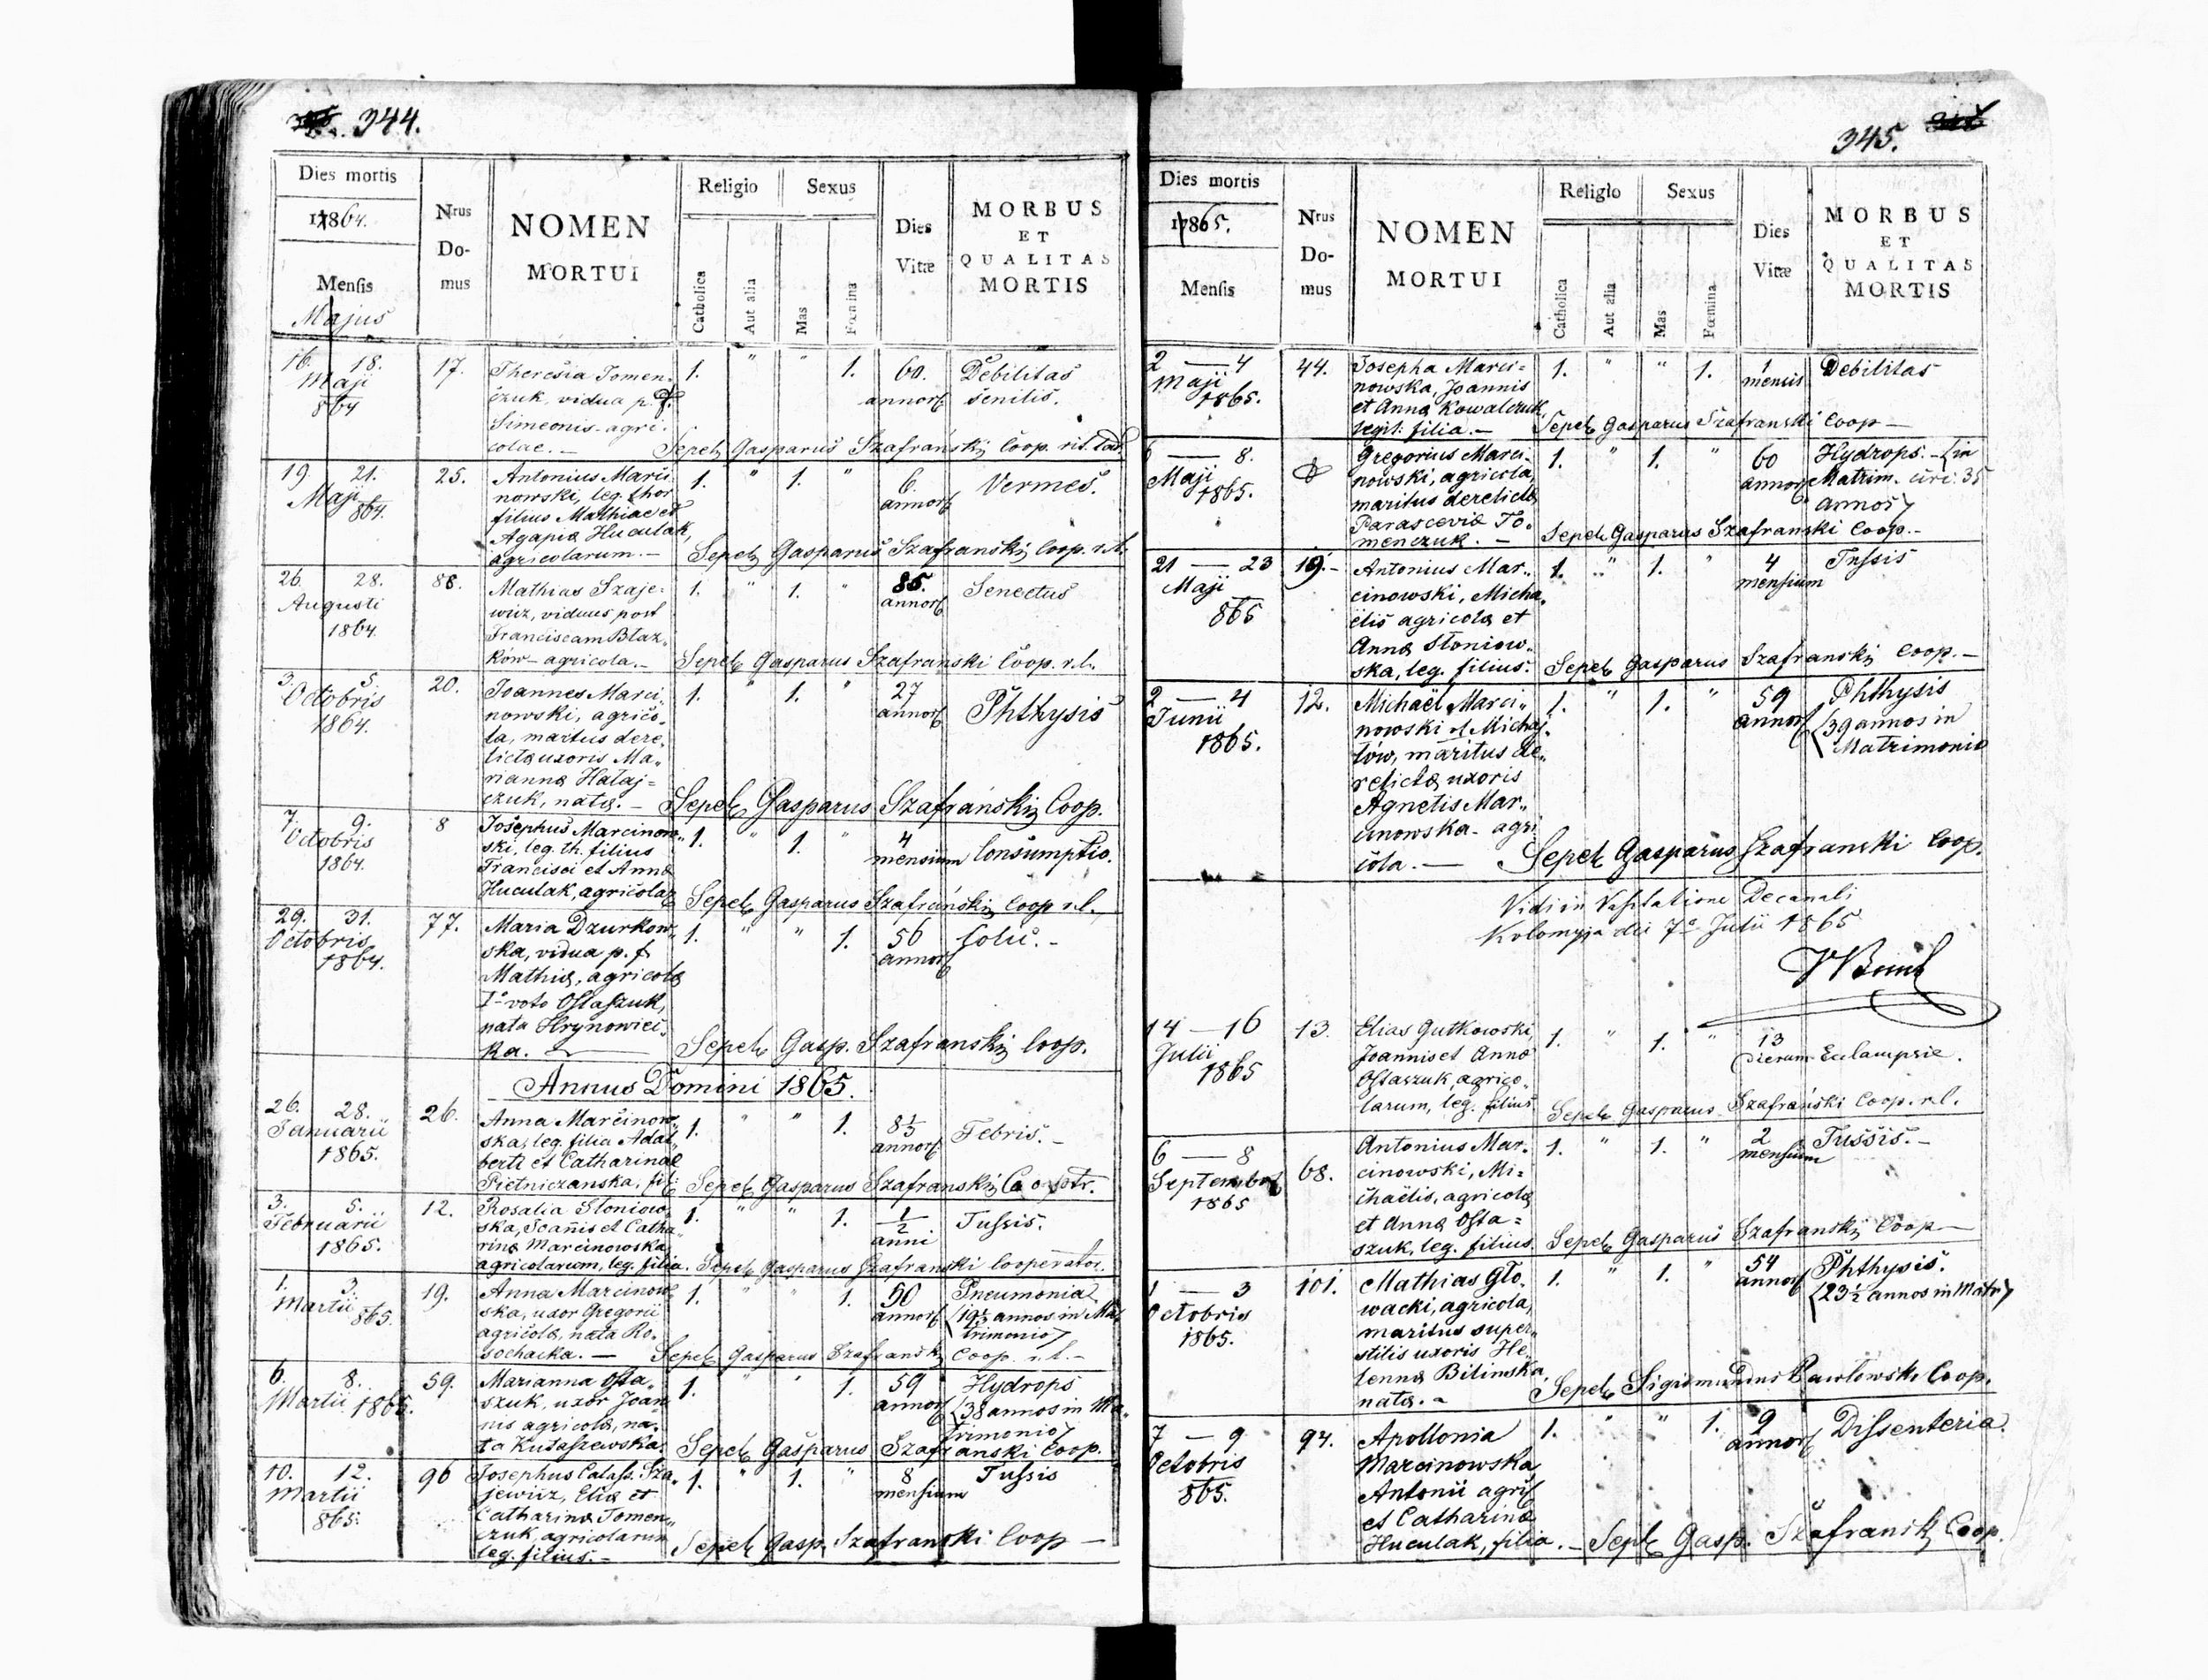 344.
Dies mortis
1864.
Mensis
Majus
Nrus
Do-
mus
NOMEN
MORTUI
Religio
Catholica
Aut alia
Sexus
Mas
Fœmina
Dies
Vitæ
MORBUS
ET
QUALITAS
MORTIS
16. 18.
Maji
864
17.
Theresia Tomen-
czuk, vidua p. f.
Simeonis agri-
colae. —
1. " " 1.
60.
annor
Debilitas
senilis.
Sepel Gasparus Szafrański Coop. rit. lat.
19. 21.
Maji
864.
25.
Antonius Marci-
nowski, leg. thor
filius Mathiae et
Agapia Huculak,
agricolarum. —
1. " 1. "
6.
annor
Vermes.
Sepel Gasparus Szafrański Coop. r.l.
26. 28.
Augusti
1864.
88.
Mathias Szaje-
wicz, viduus post
Franciscam Blaz-
ków — agricola. —
1. " 1. "
85.
annor
Senectus
Sepel Gasparus Szafrański Coop. r.l.
3. 5.
Octobris
1864.
20.
Joannes Marci-
nowski, agrico-
la, maritus dere-
licta uxoris Ma-
rianna Hataj-
czuk, nata. —
1. " 1. "
27
annor
Phthysis
Sepel Gasparus Szafrański Coop.
7. 9.
Octobris
1864.
8
Josephus Marcinow-
ski, leg. th. filius
Francisci et Anna
Huculak, agricola
1. " 1. "
4
mensium
Consumptio.
Sepel Gasparus Szafrański Coop r.l.
29. 31.
Octobris
1864.
77.
Maria Dzurkow-
ska, vidua p. f.
Mathia, agricola
I° voto Ostaszuk,
nata Hrynowiec-
ka.
1. " " 1.
56
annor
Sepel Gasp. Szafrański Coop.
Annus Domini 1865.
26. 28.
Januarii
1865.
26.
Anna Marcinow-
ska, leg. filia Adal-
berti et Catharinae
Pietniczanska, fil
1. " " 1.
annor
Febris. —
Sepel Gasparus Szafrański
3. 5.
Februarii
1865.
12.
Rosalia Stoniow-
ska, Joanis et Catha-
rina Marcinowska
agricolarum, leg. filia.
1. " " 1.
1/2
anni
Tussis.
Sepel Gasparus Szafranski Cooperator.
1. 3.
Martii
865.
19.
Anna Marcinow-
ska, uxor Gregorii
agricola, nata Ro-
sochacka. —
1. " " 1.
50
annor
Pneumonia
(19½ annos in Ma-
trimonio)
Sepel Gasparus Szafrański Coop. r.l. —
6. 8.
Martii 1865.
59.
Marianna Osta-
szuk, uxor Joan-
nis agricola, na-
ta Kutaszewska.
1. " " 1.
59
annor
Hydrops
(38 annos in Ma-
trimonio)
Sepel Gasparus Szafranski Coop.
10. 12.
Martii
865.
96
Josephus Calass. Sza-
jewicz, Elia et
Catharina Tomen-
czuk, agricolarum
leg. filius. —
1. " 1. "
8
mensium
Tussis
Sepel Gasp. Szafranski Coop —
345.
Dies mortis
1865.
Mensis
Nrus
Do-
mus
NOMEN
MORTUI
Religio
Catholica
Aut alia
Sexus
Mas
Fœmina
Dies
Vitæ
MORBUS
ET
QUALITAS
MORTIS
2 — 4
Maji
1865.
44.
Josepha Marci-
nowska, Joannis
et Anna Kowalczuk,
legit: filia. —
1. " " 1.
1
mensis
Debilitas
Sepel Gasparus Szafranski Coop —
6 — 8.
Maji
1865.
Gregorius Marci-
nowski, agricola,
maritus derelicta
Parascevia To-
menczuk. —
1. " 1. "
60
annor
Hydrops. — (in
Matrim. circ. 35
annos)
Sepel Gasparus Szafranski Coop. —
21 — 23
Maji
865
19. —
Antonius Mar-
cinowski, Micha-
ëlis agricola et
Anna Stoniow-
ska, leg. filius.
1. " 1. "
4
mensium
Tussis
Sepel Gasparus Szafrański Coop. —
2 — 4
Junii
1865.
12.
Michaël Marci-
nowski v. Michaj-
lów, maritus de-
relicta uxoris
Agnetis Mar-
cinowska - agri
cola. —
1. " 1. "
59
annor
Phthysis
(39 annos in
Matrimonio
Sepel Gasparus Szafranski Coop.
Vidi in Visitatione Decanali
Kolomyja die 7a Julii 1865
14 — 16
Julii
1865
13.
Elias Gutkowski,
Joannis et Anna
Ostaszuk, agrico-
larum, leg. filius
1. " 1. "
13
dierum
Eclampsie.
Sepel Gasparus Szafrański Coop. r.l.
6 — 8
Septembris
1865
68.
Antonius Mar-
cinowski, Mi-
chaëlis, agricola
et Anna Osta-
szuk, leg. filius.
1. " 1. "
2
mensium
Tussis. —
Sepel Gasparus Szafranski Coop —
1 — 3
Octobris
1865.
101.
Mathias Glo-
wacki, agricola,
maritus super-
stitis uxoris He-
lenna Bilinska,
nata. —
1. " 1. "
54
annor
Phthysis.
(23½ annos in Matr)
Sepel Sigismundus Pawlowski Coop.
7 — 9
Octobris
865.
94.
Apollonia
Marcinowska
Antonii agric
et Catharina
Huculak, filia. —
1. " " 1.
9
annor
Dissenteria.
Sepel Gasp. Szafranski Coop.